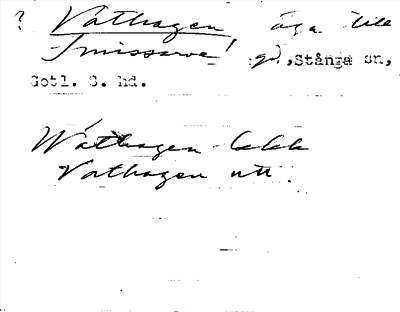 ? Vathagen, äga till
Smissarve, gd, Stånga sn,
Gotl. S. hd.
Wathagen lkk
Vathagen utt.